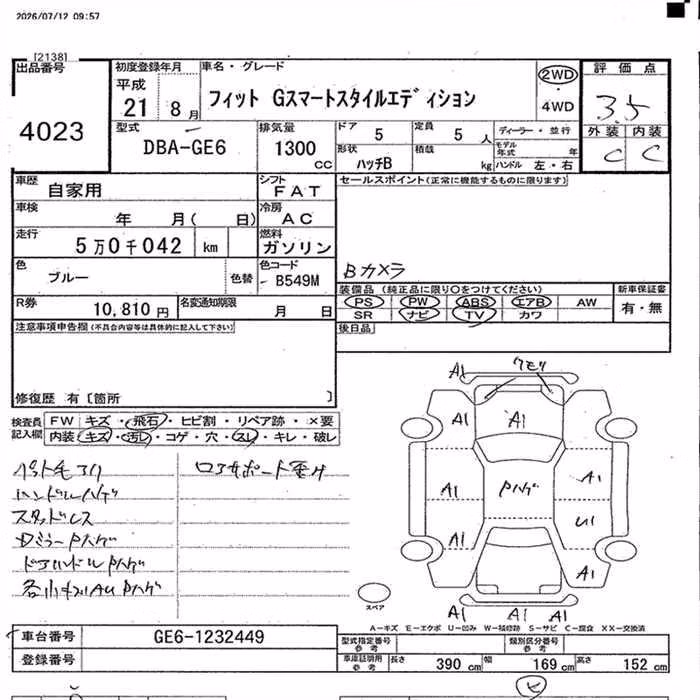 2026/07/12 09:57
[2138]
出品番号
4023
初度登録年月
平成
21 8月
車名・グレード
フィット Gスマートスタイルエディション
2WD
・
4WD
評価点
3.5
外装 内装
C C
型式
DBA-GE6
排気量
1300
CC
ドア 5
定員 5 人
形状 ハッチB
積載 kg
ディーラー・並行
モデル年式 年
ハンドル 左・右
車歴 自家用
シフト FAT
セールスポイント(正常に機能するものに限ります)
Bカメラ
車検 年 月( 日)
冷房 AC
走行 5万0千042 km
燃料 ガソリン
色 ブルー 色替
色コード B549M
装備品(純正品に限り○をつけてください)
PS PW ABS エアB AW
SR ナビ TV カワ
新車保証書
有・無
R券 10,810円
名変通知期限 月 日
後日品
注意事項申告欄(不具合内容等は具体的に記入して下さい)
修復歴 有〔箇所 〕
検査員記入欄
FW キズ・飛石・ヒビ割・リペア跡・×要
内装 キズ・汚レ・コゲ・穴・スレ・キレ・破レ
ペット毛アリ
ハンドルハゲ
スタッドレス
ドアミラーPハゲ
ドアハンドルPハゲ
A1 クモリ
A1 A1
A1 Pハゲ A1
A1 U1
A1
A1 A1 A1
スペア
A-キズ E-エクボ U-凹み W-補修跡 S-サビ C-腐食 XX-交換済
車台番号 GE6-1232449
登録番号
型式指定番号 参考
類別区分番号 参考
車庫証明用 参考
長さ 390 cm 幅 169 cm 高さ 152 cm